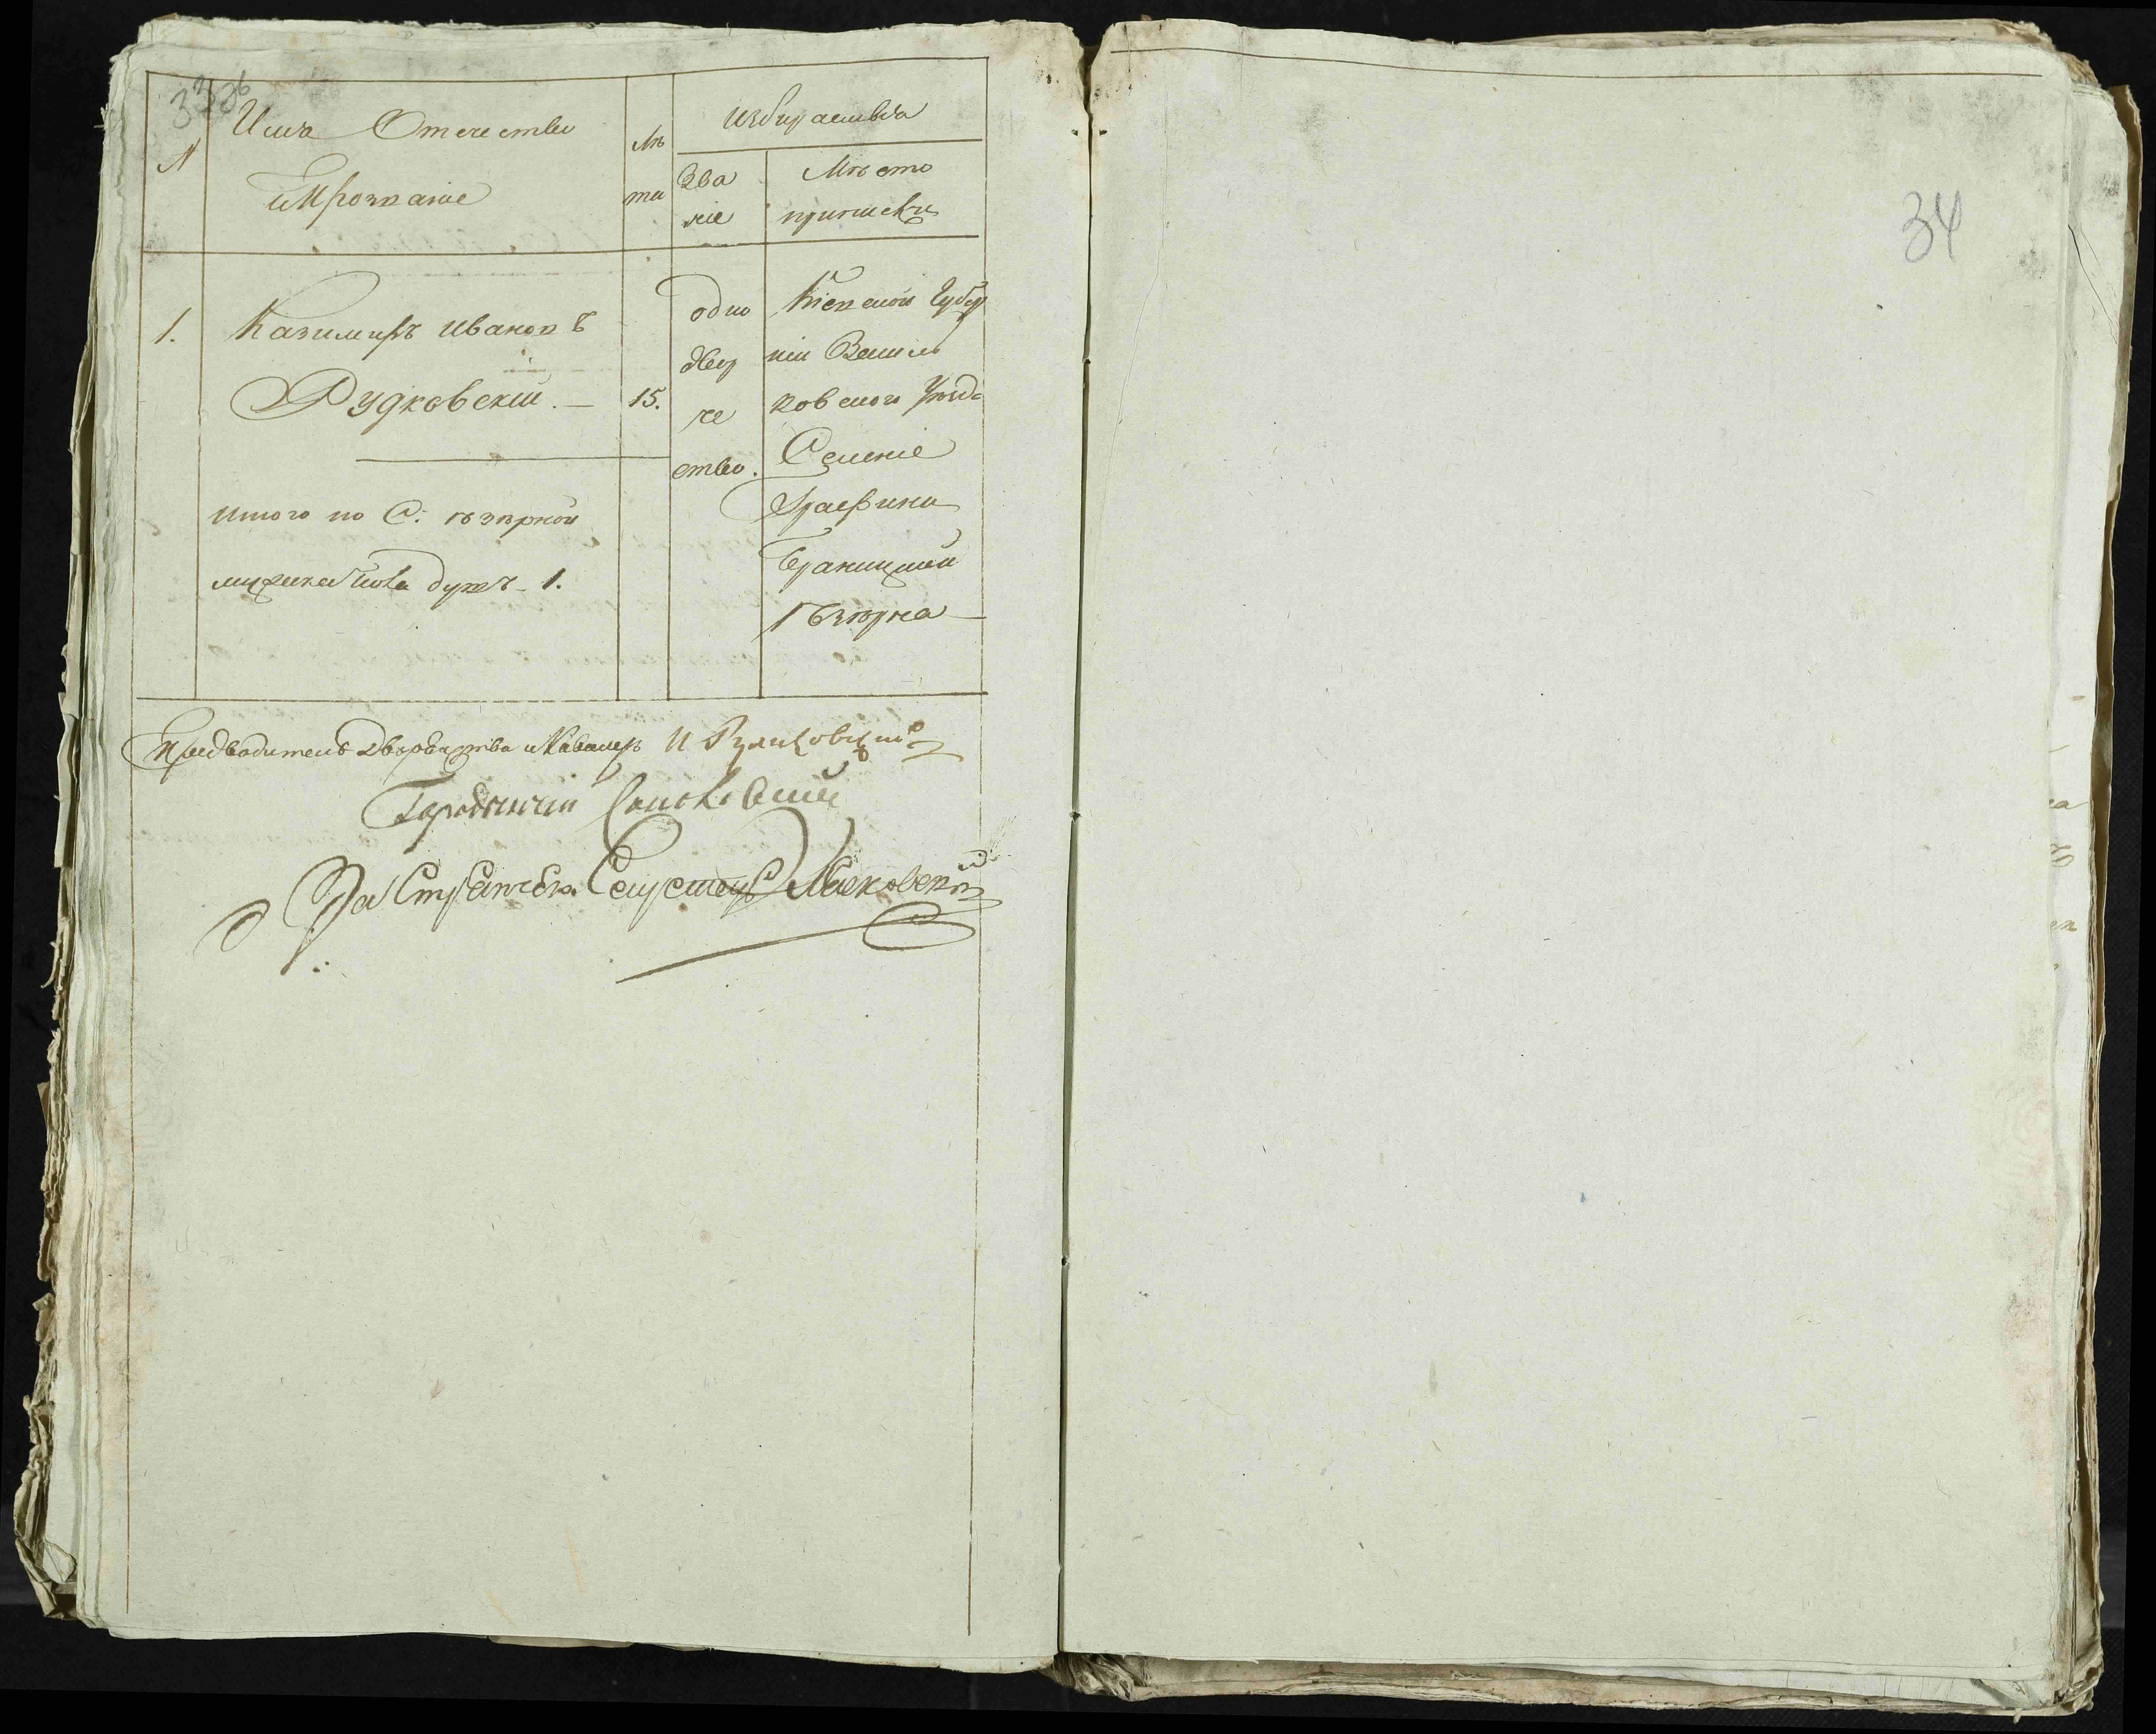 33об
№
Имя Отечество
и Прозваніе
Лѣ
та
избираемыя
Зва
ніе
Мѣсто
приписки
1.
Казимиръ Ивановъ
Рудковскій. —
15.
одно
двор
че
ство.
Кіевской Губер
ніи Василь
ковского Уѣзда
Селеніе
Графини
Браницкой
Пѣзѣрна
итого по С: Пѣзѣрной
мужеска пола душъ - 1.
Предводитель Дворянства и Кавалеръ И Руликовскій
Городничій
За Стряпчего Секретарь
34